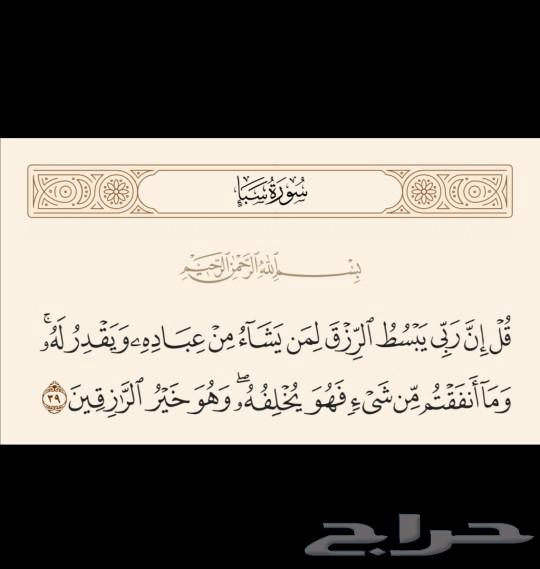 سُورَةُ سَبَإٍ
بِسْمِ اللَّهِ الرَّحْمَٰنِ الرَّحِيمِ
قُلْ إِنَّ رَبِّى يَبْسُطُ ٱلرِّزْقَ لِمَن يَشَآءُ مِنْ عِبَادِهِۦ وَيَقْدِرُ لَهُۥۚ
وَمَآ أَنفَقْتُم مِّن شَىْءٍ فَهُوَ يُخْلِفُهُۥۖ وَهُوَ خَيْرُ ٱلرَّٰزِقِينَ ٣٩
حراج